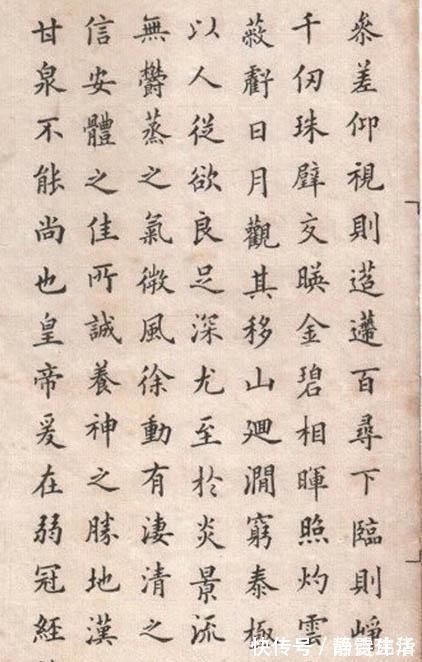 叅差仰視則迢遰百尋下臨則崢
千仞珠壁交暎金碧相暉照灼雲
蔽虧日月觀其移山廻澗窮泰極
以人從欲良足深尤至於炎景流
無鬱蒸之氣微風徐動有淒清之
信安體之佳所誠養神之勝地漢
甘泉不能尚也皇帝爰在弱冠經
快传号/静霞珪渚